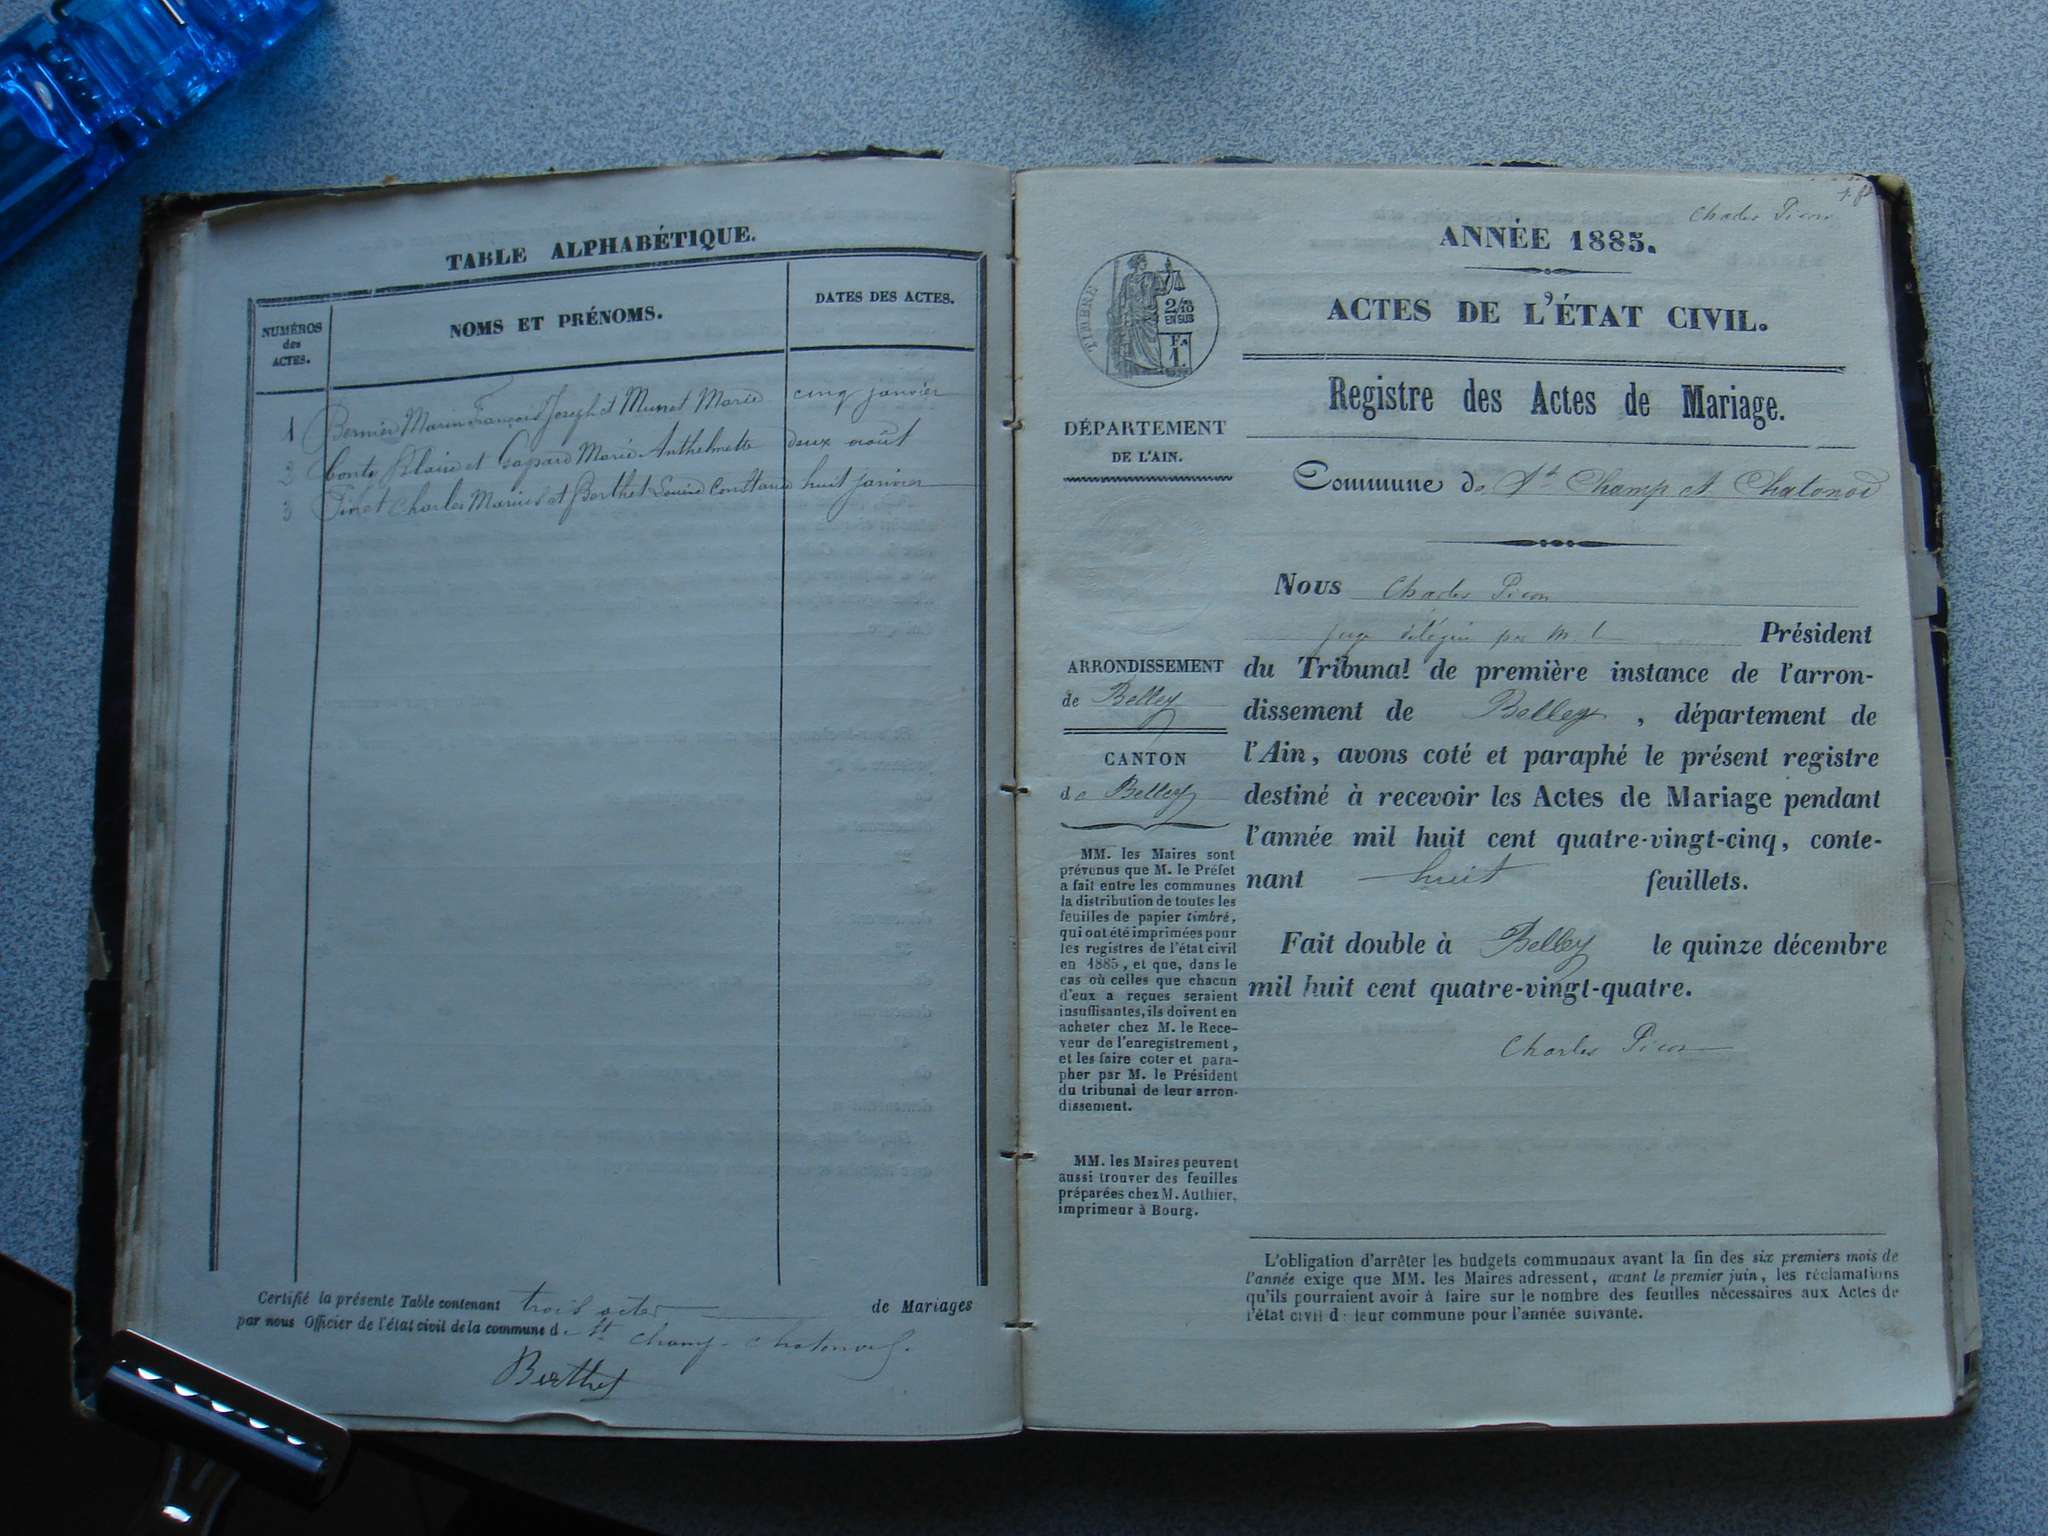 TABLE ALPHABÉTIQUE.
NUMÉROS
des
ACTES.
NOMS ET PRÉNOMS.
DATES DES ACTES.
1 Bernier Marin François Joseph et Munet Marie cinq janvier
2 Conte Blaise et Gaspard Marie Anthelmette deux août
3 Pinet Charles Marius et Berthet Louise Constance huit janvier
Certifié la présente Table contenant trois actes de Mariages
par nous Officier de l'état civil de la commune de St Champ-Chatonod.
Berthet
Charles Picon
ANNÉE 1885.
ACTES DE L'ÉTAT CIVIL.
TIMBRE
2/10
EN SUS
1
Registre des Actes de Mariage.
DÉPARTEMENT
DE L'AIN.
Commune de St Champ et Chatonod
Nous Charles Picon
juge délégué par M. le Président
du Tribunal de première instance de l'arron-
dissement de Belley, département de
l'Ain, avons coté et paraphé le présent registre
destiné à recevoir les Actes de Mariage pendant
l'année mil huit cent quatre-vingt-cinq, conte-
nant huit feuillets.
Fait double à Belley le quinze décembre
mil huit cent quatre-vingt-quatre.
Charles Picon
ARRONDISSEMENT
de Belley
CANTON
de Belley
MM. les Maires sont
prévenus que M. le Préfet
a fait entre les communes
la distribution de toutes les
feuilles de papier timbré,
qui ont été imprimées pour
les registres de l'état civil
en 1885, et que, dans le
cas où celles que chacun
d'eux a reçues seraient
insuffisantes, ils doivent en
acheter chez M. le Rece-
veur de l'enregistrement,
et les faire coter et para-
pher par M. le Président
du tribunal de leur arron-
dissement.
MM. les Maires peuvent
aussi trouver des feuilles
préparées chez M. Authier,
imprimeur à Bourg.
L'obligation d'arrêter les budgets communaux avant la fin des six premiers mois de
l'année exige que MM. les Maires adressent, avant le premier juin, les réclamations
qu'ils pourraient avoir à faire sur le nombre des feuilles nécessaires aux Actes de
l'état civil d leur commune pour l'année suivante.